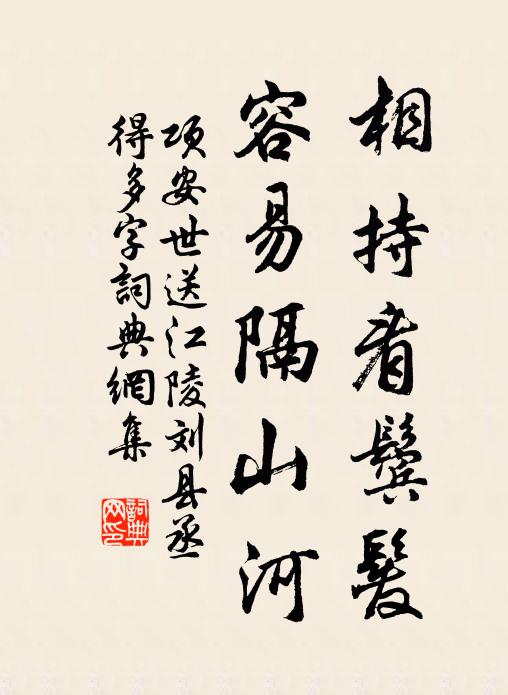 相持看鬓髮
容易隔山河
项安世送江陵刘县丞
得多字詞典網集
詞典網印